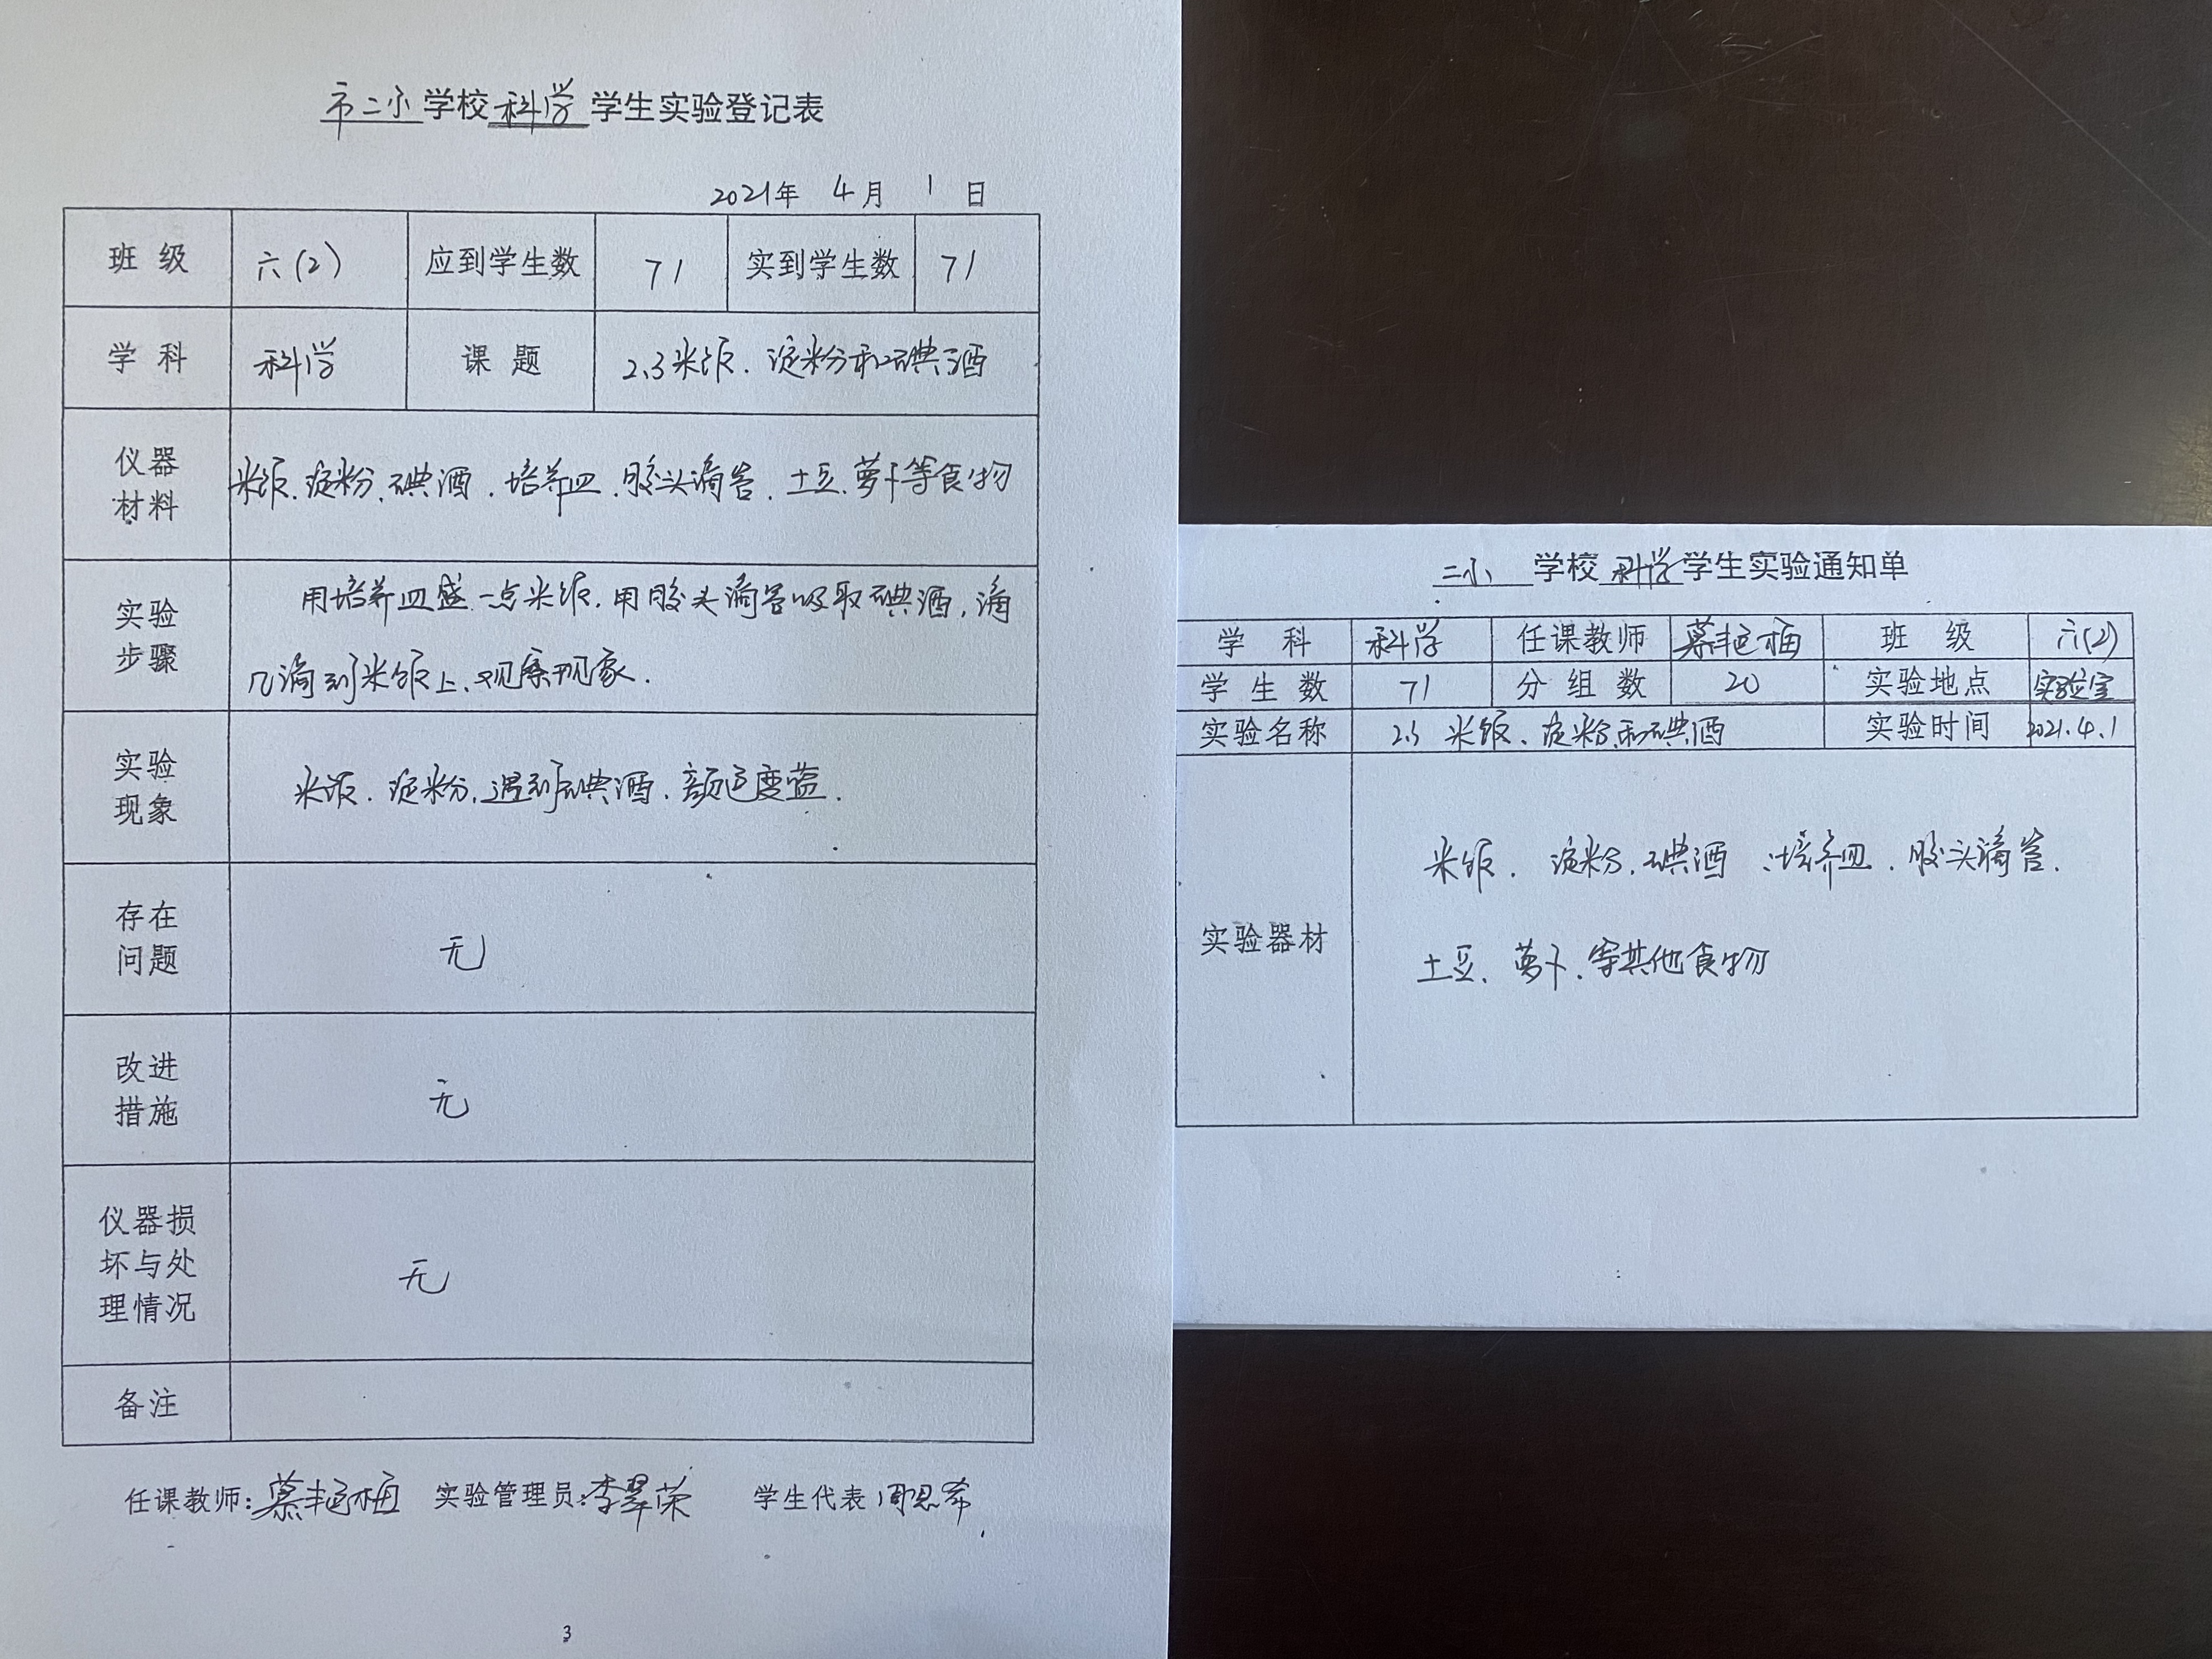 市二小学校科学学生实验登记表
2021年 4月 1日
班级 六(2) 应到学生数 71 实到学生数 71
学科 科学 课题 2.3米饭、淀粉和碘酒
仪器材料 米饭、淀粉、碘酒、培养皿、胶头滴管、土豆、萝卜等食物
实验步骤 用培养皿盛一点米饭,用胶头滴管吸取碘酒,滴
几滴到米饭上、观察现象.
实验现象 米饭、淀粉,遇到碘酒、颜色变蓝.
存在问题 无
改进措施 无
仪器损坏与处理情况 无
备注
任课教师:慕艳梅 实验管理员:李翠荣 学生代表 周思希
3
二小学校科学学生实验通知单
学科 科学 任课教师 慕艳梅 班级 六(2)
学生数 71 分组数 20 实验地点 实验室
实验名称 2.3 米饭、淀粉和碘酒 实验时间 2021.4.1
实验器材 米饭、淀粉、碘酒、培养皿、胶头滴管.
土豆、萝卜、等其他食物